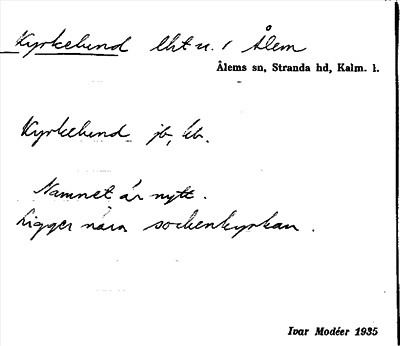 Kyrkelund lht u. / Ålem
Ålems sn, Stranda hd, Kalm. l.
Kyrkelund jb, kb.
Namnet är nytt.
Ligger nära sockenkyrkan.
Ivar Modéer 1935